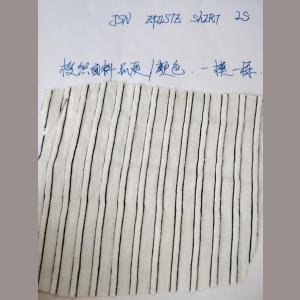 JSN ZARLSTZ SHIRT 2S
按照面料品质/颜色.一模一样.